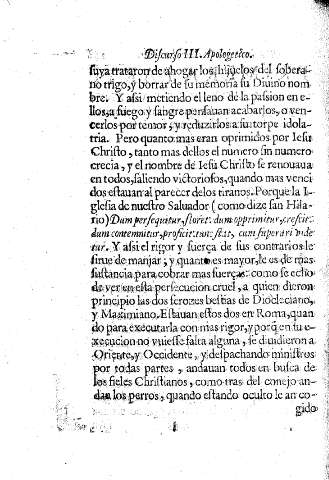 Discurso III. Apologetico.
suya trataron de ahogar los hijuelos del sobera-
no trigo, y borrar de su memoria su Diuino nom
bre. Y assi metiendo el leño de la passion en e-
llos, a fuego y sangre pensauan acabarlos, o ven-
cerlos por temor, y reduzirlos a su torpe idola-
tria. Pero quanto mas eran oprimidos por Iesu
Christo, tanto mas dellos el numero sin numero
crecia, y el nombre de Iesu Christo se renouaua
en todos, saliendo victoriosos, quando mas venci
dos estauan al parecer delos tiranos. Porque la I-
glesia de nuestro Saluador (como dize san Hila-
rio) Dum persequitur, floret: dum opprimitur, crescit:
dum contemnitur, proficit: tunc stat, cum superari vide
tur. Y assi el rigor y fuerça de sus contrarios le
sirue de manjar, y quanto es mayor, le es de mas
sustancia para cobrar mas fuerças: como se echo
de ver en esta persecucion cruel, a quien dieron
principio las dos ferozes bestias de Diocleciano,
y Maximiano. Estauan estos dos en Roma, quan
do para executarla con mas rigor, y porq̃ en su e-
xecucion no vuiesse falta alguna, se diuidieron a
Oriente, y Occidente, y despachando ministros
por todas partes, andauan todos en busca de
los fieles Christianos, como tras del conejo an-
dan los perros, quando estando oculto le an co-
gido